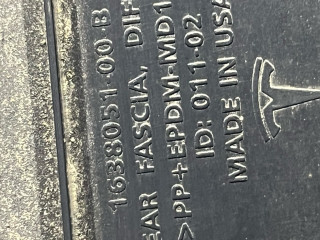 1638051-00-B
EAR FASCIA, DIF
>PP+EPDM-MD1
ID: 011-02
MADE IN USA